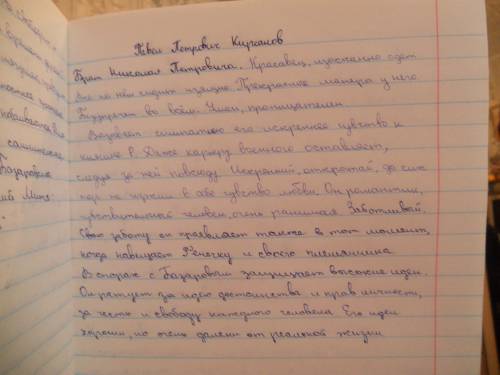 Павел Петрович Кирсанов
Брат Николая Петровича. Красавец, изысканно одет
Все на нём сидит изящно. Прекрасные манеры у него
Безупречен во всём. Умен, проницателен.
искреннее чувство к
княгине Р. Даже карьеру военного оставляет,
следуя за ней повсюду. Искренний, открытый, до сих
пор не изжил в себе чувство любви. Он романтик,
чувствительный человек, очень ранимая Заботливый.
Свою заботу он проявляет также в тот момент,
когда навещает Фенечку и своего племянника
В спорах с Базаровым защищает высокие идеи.
Он ратует за идею достоинства и прав личности,
за честь и свободу каждого человека. Его идеи
хороши, но очень далеки от реальной жизни
Базарова